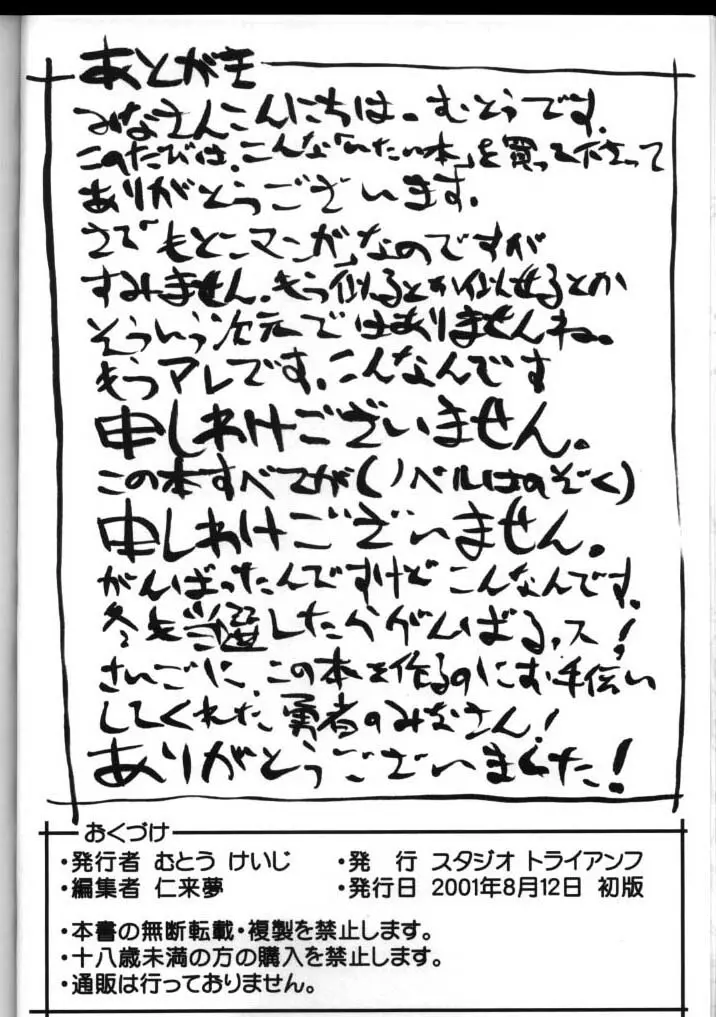 あとがき
みなさんこんにちは。むとうです。
このたびは、こんな「いたい本」を買って下さって
ありがとうございます。
さて「もとこマンガ」なのですが
すみません。もう似るとか似せるとか
そういう次元ではありませんね。
もうアレです。こんなんです
申しわけございません。
この本すべてが(ノベルはのぞく)
申しわけございません。
がんばったんですけど こんなんです。
冬も当選したらがんばるッス!
さいごに、この本を作るのにお手伝い
してくれた勇者のみなさん!
ありがとうございました!
おくづけ
・発行者 むとう けいじ ・発 行 スタジオ トライアンフ
・編集者 仁来夢 ・発行日 2001年8月12日 初版
・本書の無断転載・複製を禁止します。
・十八歳未満の方の購入を禁止します。
・通販は行っておりません。